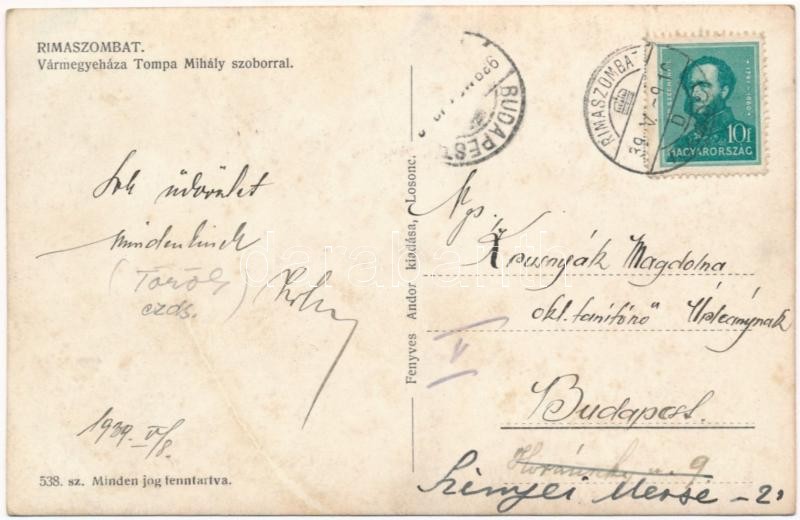 RIMASZOMBAT.
Vármegyeháza Tompa Mihály szoborral.
Sok üdvözlet
mindenkinek
(Török)
ezds.
1939. V/8.
538. sz. Minden jog fenntartva.
Fenyves Andor kiadása, Losonc.
BUDAPEST
RIMASZOMBAT
39. V. -9. 10
D
SZÉCHENYI
10f
MAGYARORSZÁG
Krusnyák Magdolna
okl. tanítónő Úrleánynak
Budapest.
9
Szinyei Merse - 21
V
darabanth